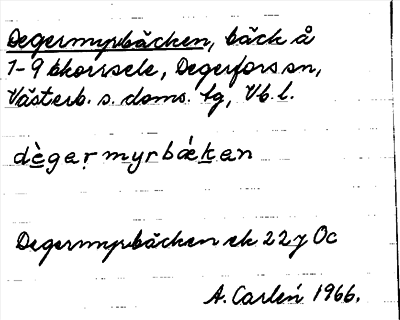 Degermyrbäcken, bäck å
1-9 Ekorrsele, Degerfors sn,
Västerb. s. doms. lg, Vb. l.
dègaṛmyrbækan
Degermyrbäcken ek 22y Oc
A. Carlén 1966.